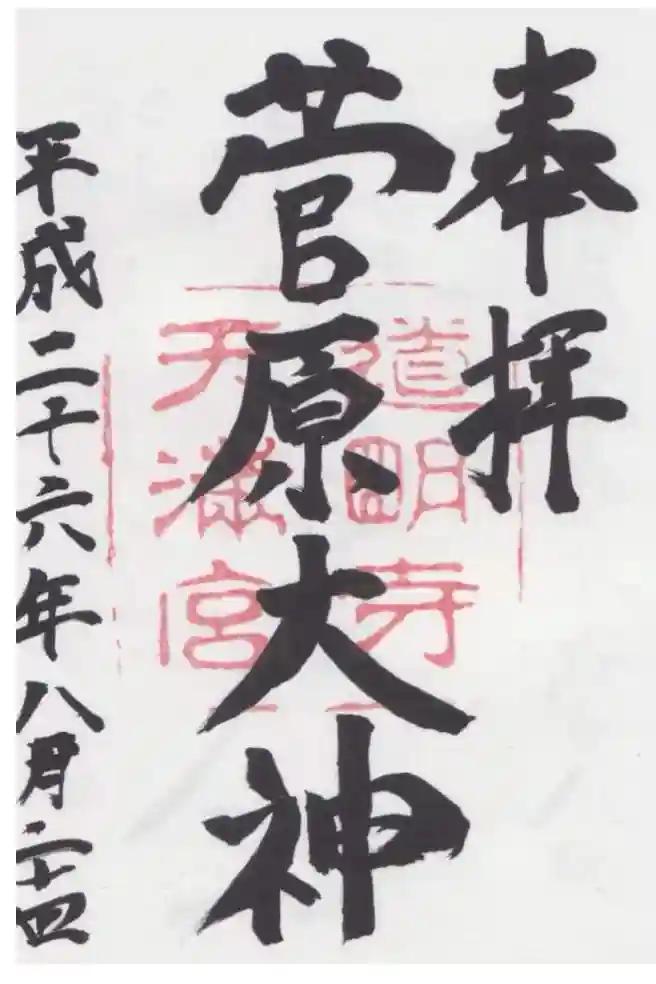 奉拝
菅原大神
道明寺
天満宮
平成二十六年八月二十四